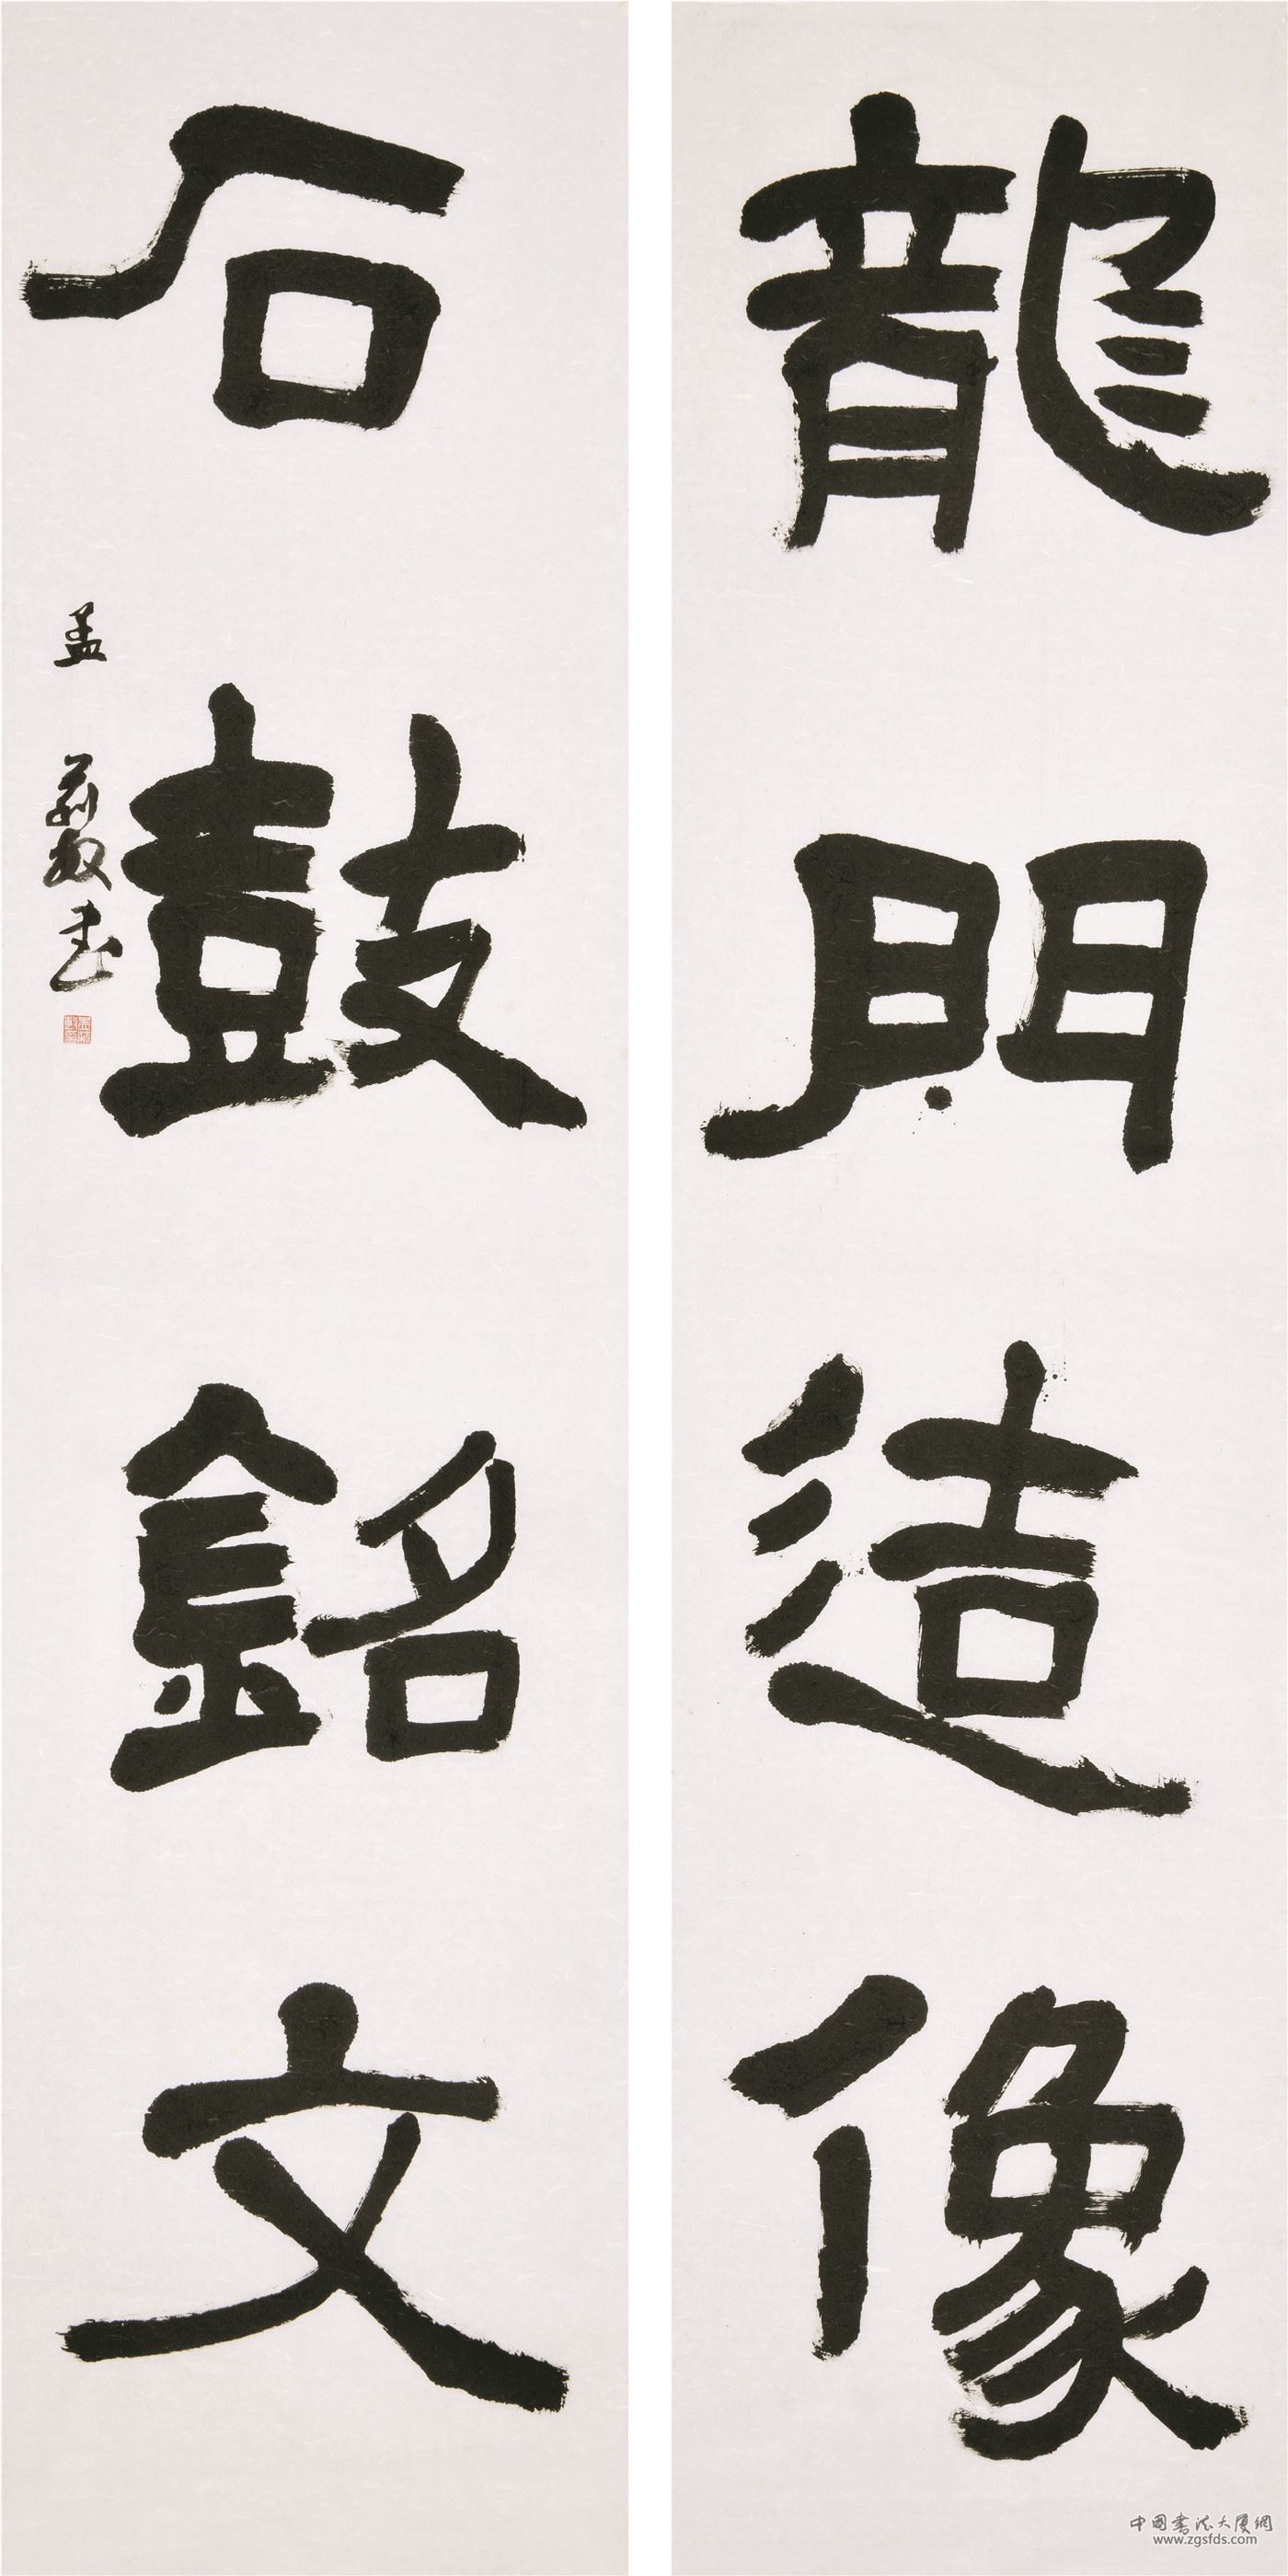 龍門造像
石鼓銘文
中國書法大厦網
www.zgsfds.com